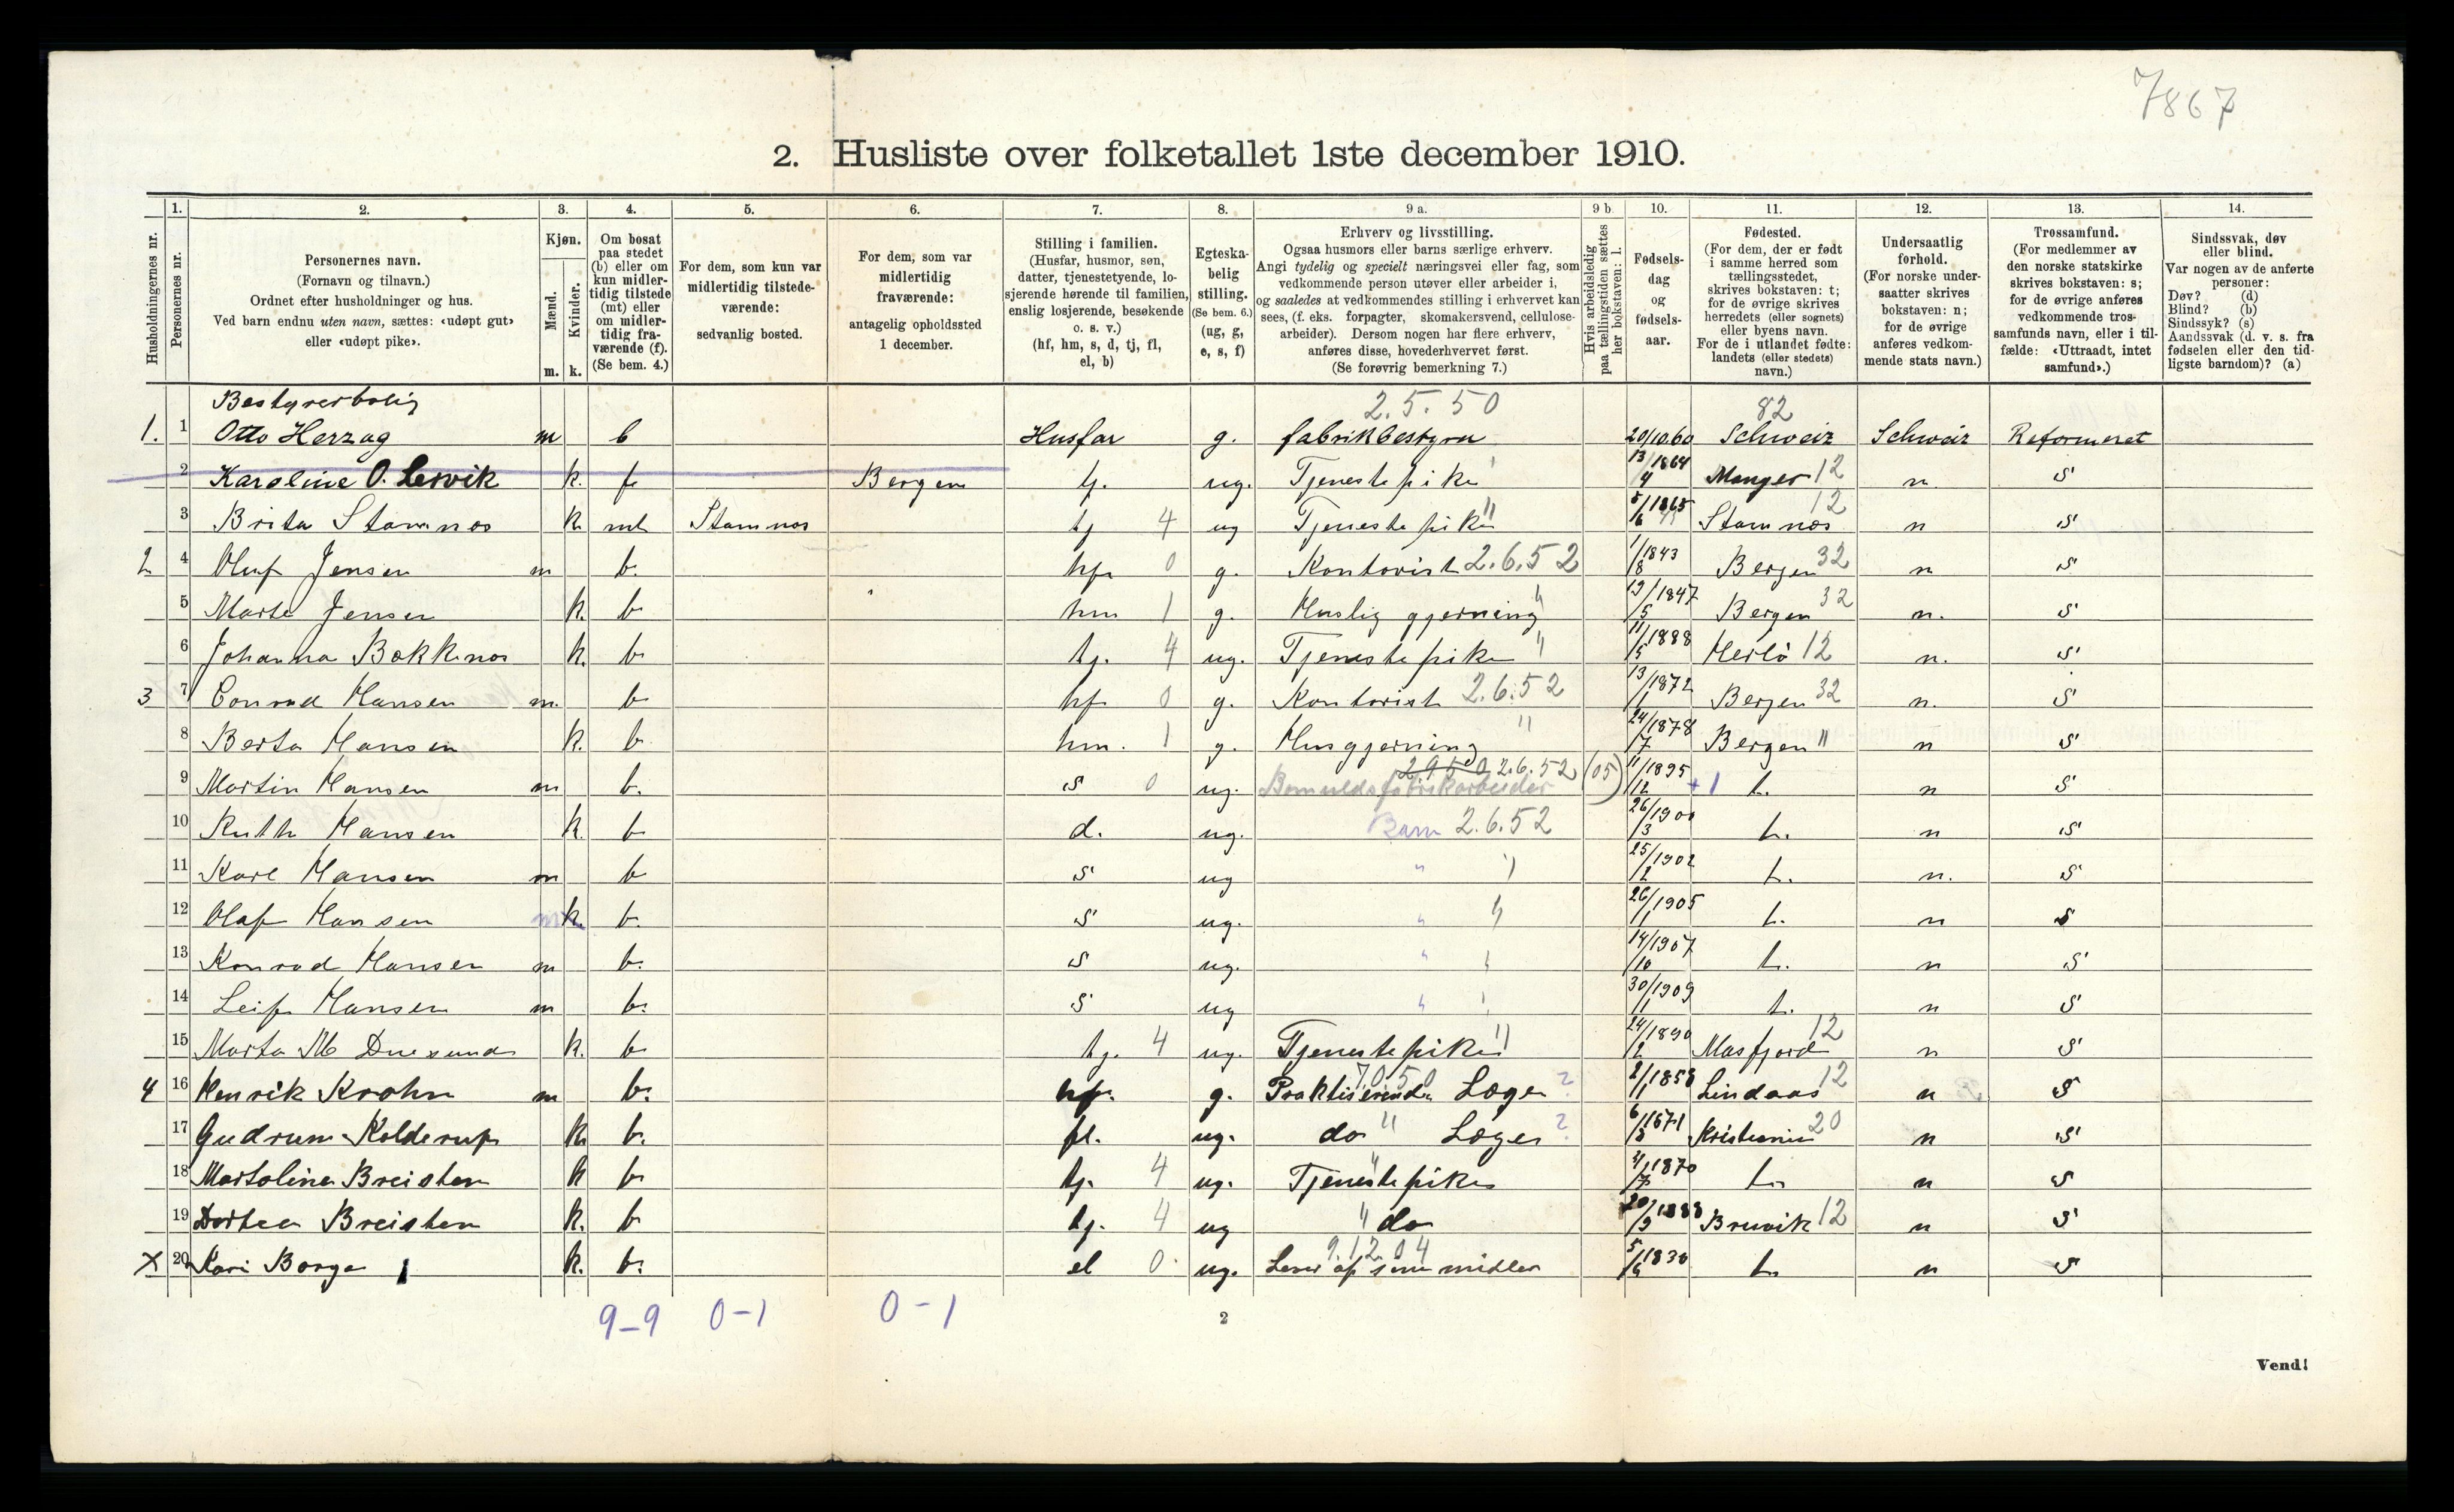 7867
2. Husliste over folketallet 1ste december 1910.
1. 2. 3. 4. 5. 6. 7. 8. 9 a. 9 b. 10. 11. 12. 13. 14.
Husholdningernes nr.
Personernes nr.
Personernes navn.
(Fornavn og tilnavn.)
Ordnet efter husholdninger og hus.
Ved barn endnu uten navn, sættes: «udøpt gut»
eller «udøpt pike».
Kjøn.
Mænd.
Kvinder.
m. k.
Om bosat
paa stedet
(b) eller om
kun midler-
tidig tilstede
(mt) eller
om midler-
tidig fra-
værende (f).
(Se bem. 4.)
For dem, som kun var
midlertidig tilstede-
værende:
sedvanlig bosted.
For dem, som var
midlertidig
fraværende:
antagelig opholdssted
1 december.
Stilling i familien.
(Husfar, husmor, søn,
datter, tjenestetyende, lo-
sjerende hørende til familien,
enslig losjerende, besøkende
o. s. v.)
(hf, hm, s, d, tj, fl,
el, b)
Egteska-
belig
stilling.
(Se bem. 6.)
(ug, g,
e, s, f)
Erhverv og livsstilling.
Ogsaa husmors eller barns særlige erhverv.
Angi tydelig og specielt næringsvei eller fag, som
vedkommende person utøver eller arbeider i,
og saaledes at vedkommendes stilling i erhvervet kan
sees, (f. eks. forpagter, skomakersvend, cellulose-
arbeider). Dersom nogen har flere erhverv,
anføres disse, hovederhvervet først.
(Se forøvrig bemerkning 7.)
Hvis arbeidsledig
paa tællingstiden sættes
her bokstaven: l.
Fødsels-
dag
og
fødsels-
aar.
Fødested.
(For dem, der er født
i samme herred som
tællingsstedet,
skrives bokstaven: t;
for de øvrige skrives
herredets (eller sognets)
eller byens navn.
For de i utlandet fødte:
landets (eller stedets)
navn.)
Undersaatlig
forhold.
(For norske under-
saatter skrives
bokstaven: n;
for de øvrige
anføres vedkom-
mende stats navn.)
Trossamfund.
(For medlemmer av
den norske statskirke
skrives bokstaven: s;
for de øvrige anføres
vedkommende tros-
samfunds navn, eller i til-
fælde: «Uttraadt, intet
samfund».)
Sindssvak, døv
eller blind.
Var nogen av de anførte
personer:
Døv? (d)
Blind? (b)
Sindssyk? (s)
Aandssvak (d. v. s. fra
fødselen eller den tid-
ligste barndom)? (a)
Bestyrerbolig 2.5.50 82
1. 1 Otto Herzog m b Husfar g. fabrikbestyrer 20/10.60 Schweiz Schweiz Reformeret
2 Karoline O. Lervik k. f. Bergen tj. ug. Tjenestepike 13/4 1864 Manger 12 n s
3 Brita Stamnos k. mt Stamnos tj 4 ug Tjenestepike " 5/6 1865 Stamnos 12 n s
2 4 Oluf Jensen m b. hf. 0 g. Kontorist 2.6.52 1/8 1843 Bergen 32 n s
5 Marta Jensen k. b. hm 1 g. Huslig gjerning " 19/5 1847 Bergen 32 n. s
6 Johanna Bakknes k. b. tj. 4 ug. Tjenestepike " 11/5 1888 Herlö 12 n. s
3 7 Conrad Hansen m. b hf 0 g. Kontorist 2.6.52 13/1 1872 Bergen 32 n. s
8 Berta Hansen k. b. hm. 1 g. Husgjerning " 24/7 1878 Bergen " n s
9 Martin Hansen m b. s 0 ug. Bomuldsfabrikarbeider 2950 2.6.52 (05) 11/12 1895 +1 t. n s
10 Ruth Hansen k. b. d. ug. Barn 2.6.52 26/3 1900 t. n s
11 Karl Hansen m b s ug " " 25/2 1902 t. n. s
12 Olaf Hansen m k. b. s ug. " " 26/1 1905 t. n s
13 Konrad Hansen m b. s ug. " " 14/10 1907 t. n s
14 Leif Hansen m b. s ug " " 30/1 1909 t. n s
15 Marta M Duesund k. b. tj. 4 ug. Tjenestepike " 24/2 1890 Masfjord 12 n s
4 16 Henrik Krohn m b. hf. g. Praktiserende Læge 7050 ? 2/11 1858 Lindaas 12 n s
17 Gudrun Kolderup k b. fl. ug. do " Læge ? 6/8 1871 Kristiania 20 n s
18 Martoline Breisten k b. tj. 4 ug. Tjenestepike " 4/7 1870 t. n s
19 Dortea Breisten k. b tj. 4 ug " do 20/9 1888 Bruvik 12 n s
x 20 Kari Borge k. b. el 0 ug. Lever af sine midler 9.12.04 5/6 1830 t. n s
9-9 0-1 0-1
2
Vend!